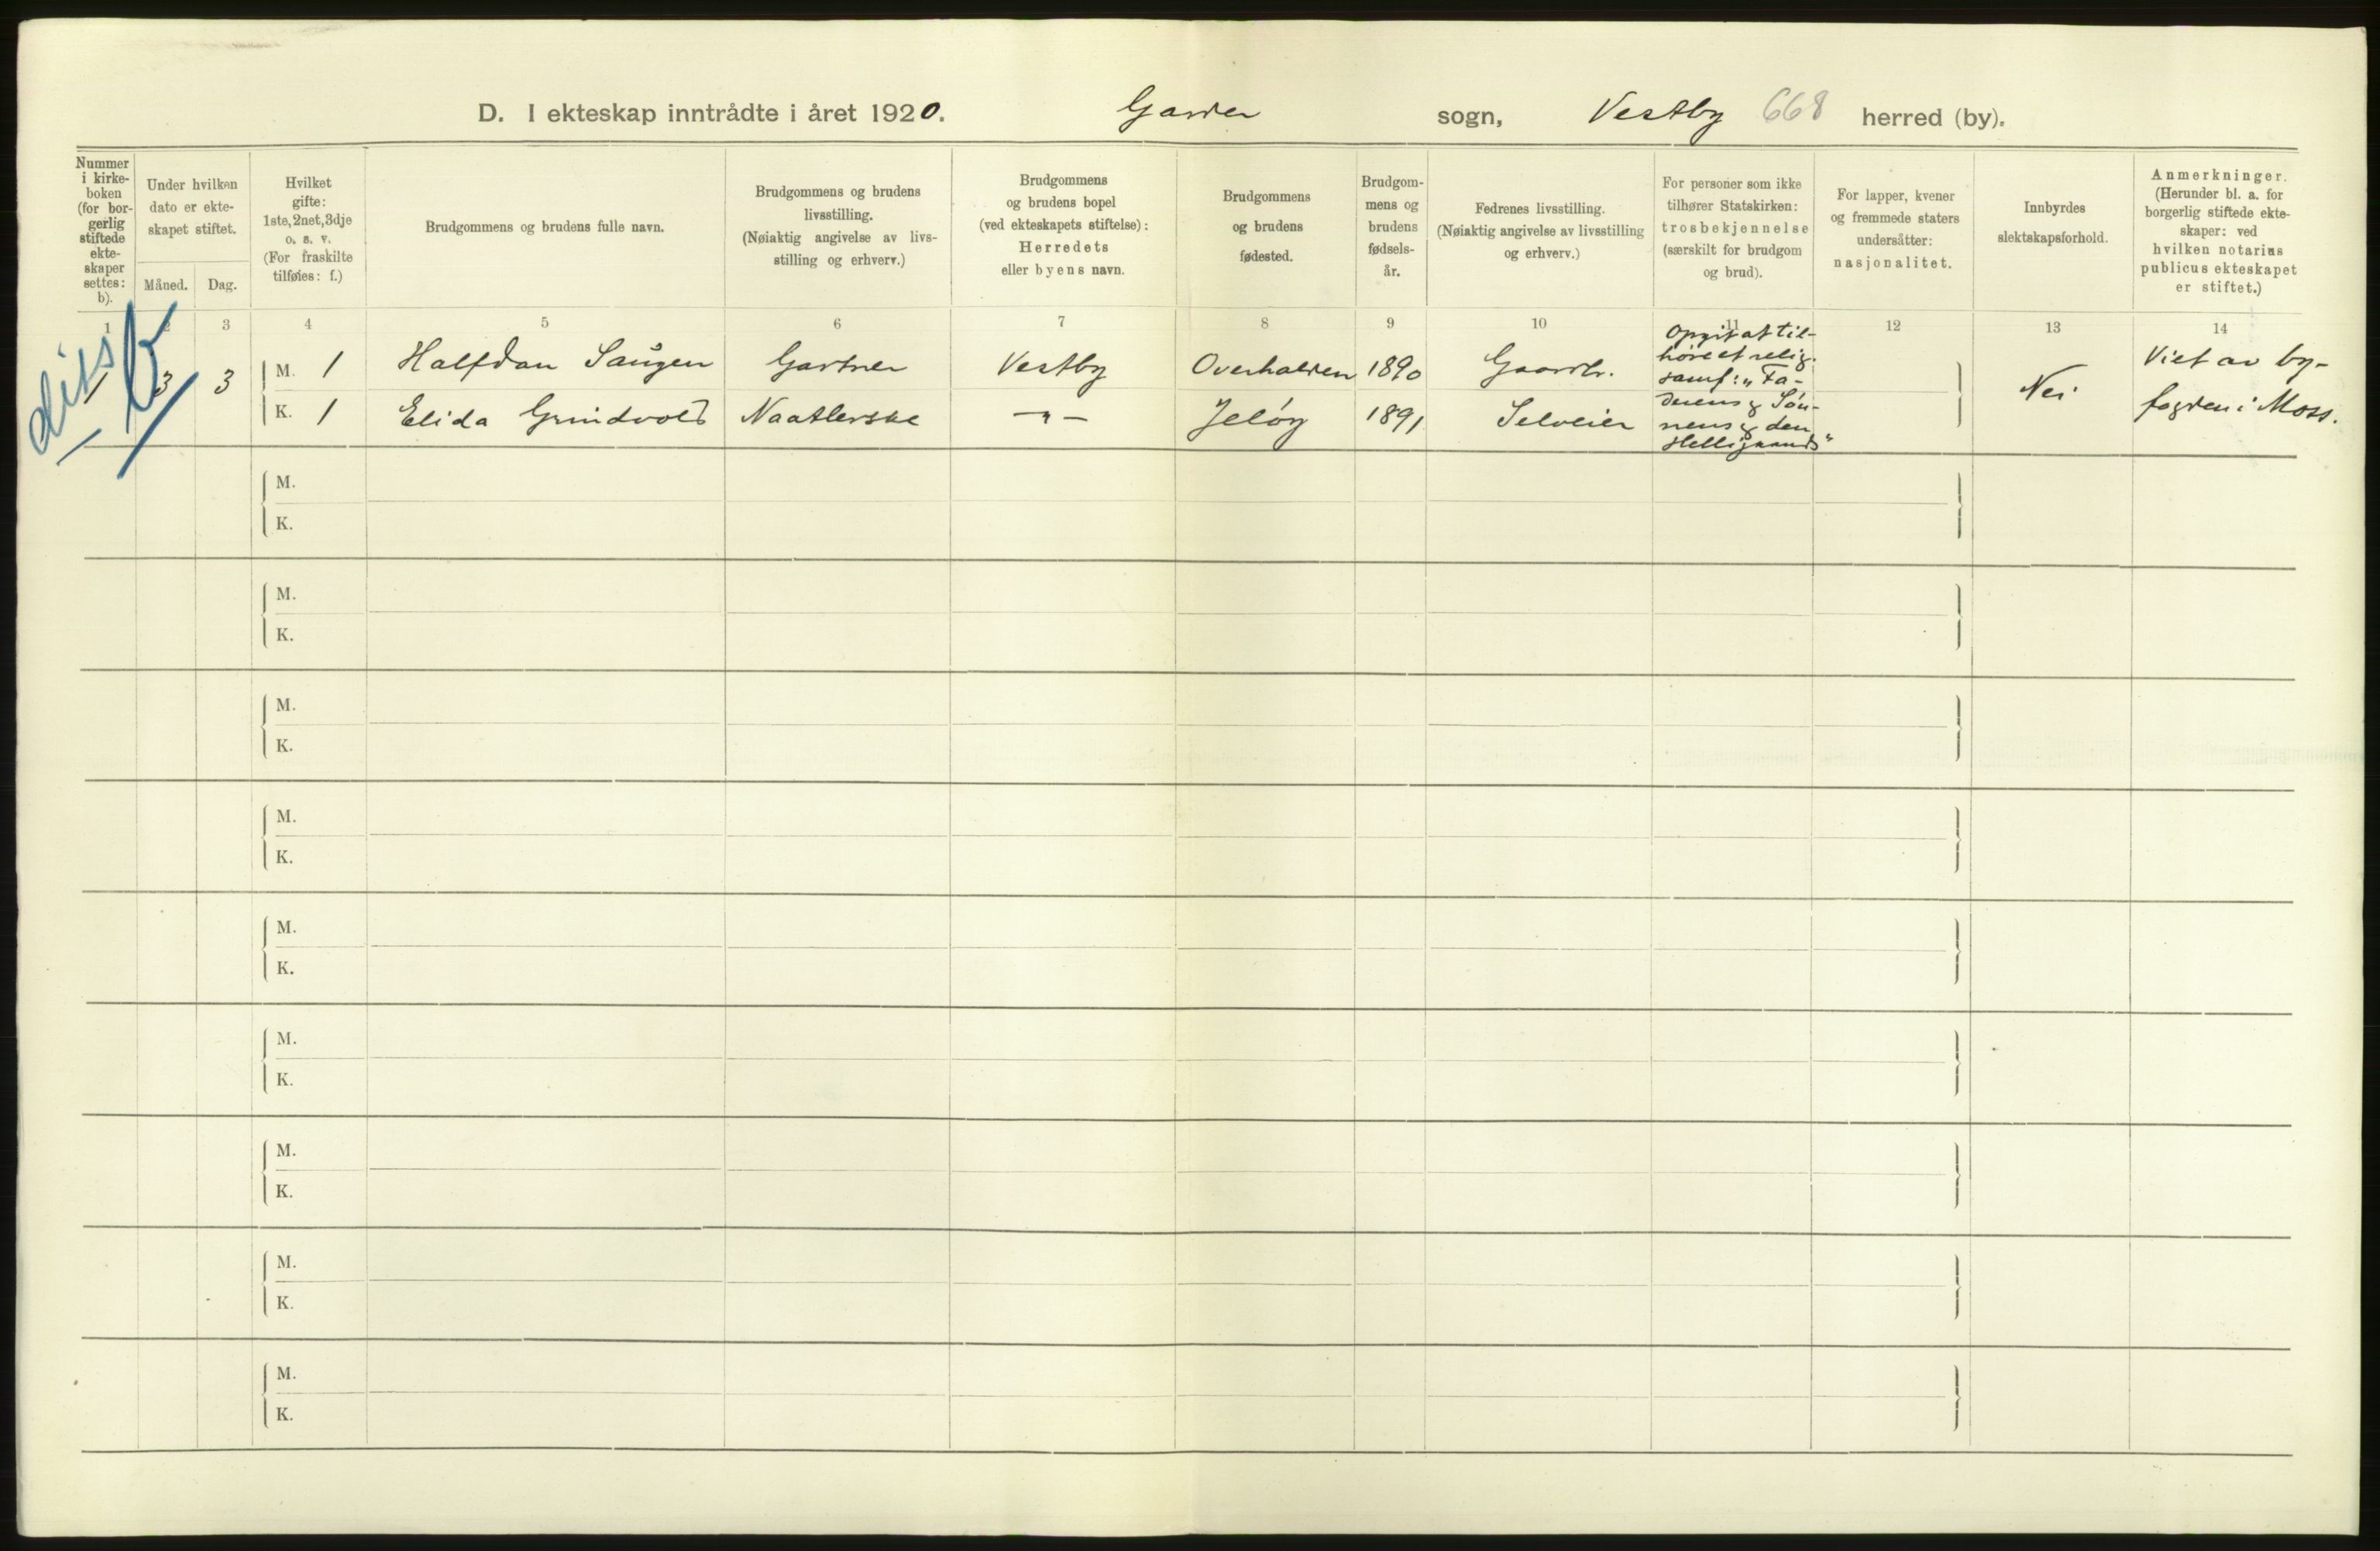 D. I ekteskap inntrådte i året 1920. Garder sogn, Vestby 668 herred (by).
Nummer
i kirke-
boken
(for bor-
gerlig
stiftede
ekte-
skaper
settes:
b).
Under hvilken
dato er ekte-
skapet stiftet.
Måned. Dag.
Hvilket
gifte:
1ste, 2net, 3dje
o. s. v.
(For fraskilte
tilføies: f.)
Brudgommens og brudens fulle navn.
Brudgommens og brudens
livsstilling.
(Nøiaktig angivelse av livs-
stilling og erhverv.)
Brudgommens
og brudens bopel
(ved ekteskapets stiftelse):
Herredets
eller byens navn.
Brudgommens
og brudens
fødested.
Brudgom-
mens og
brudens
fødsels-
år.
Fedrenes livsstilling.
(Nøiaktig angivelse av livsstilling
og erhverv.)
For personer som ikke
tilhører Statskirken:
trosbekjennelse
(særskilt for brudgom
og brud).
For lapper, kvener
og fremmede staters
undersåtter:
nasjonalitet.
Innbyrdes
slektskapsforhold.
Anmerkninger.
(Herunder bl. a. for
borgerlig stiftede ekte-
skaper: ved
hvilken notarius
publicus ekteskapet
er stiftet.)
1 2 3 4 5 6 7 8 9 10 11 12 13 14
diss b
1 3 3
M. 1 Halfdan Saugen Gartner Vestby Overhalden 1890 Gaardbr.
K. 1 Elida Grindvold Naatlerske -"- Jeløy 1891 Selveier
Opgit at til-
høre et relig.
samf: "Fa-
derens og Søn-
nens og den
Helligaands"
Nei
Viet av by-
fogden i Moss.
M.
K.
M.
K.
M.
K.
M.
K.
M.
K.
M.
K.
M.
K.
M.
K.
M.
K.